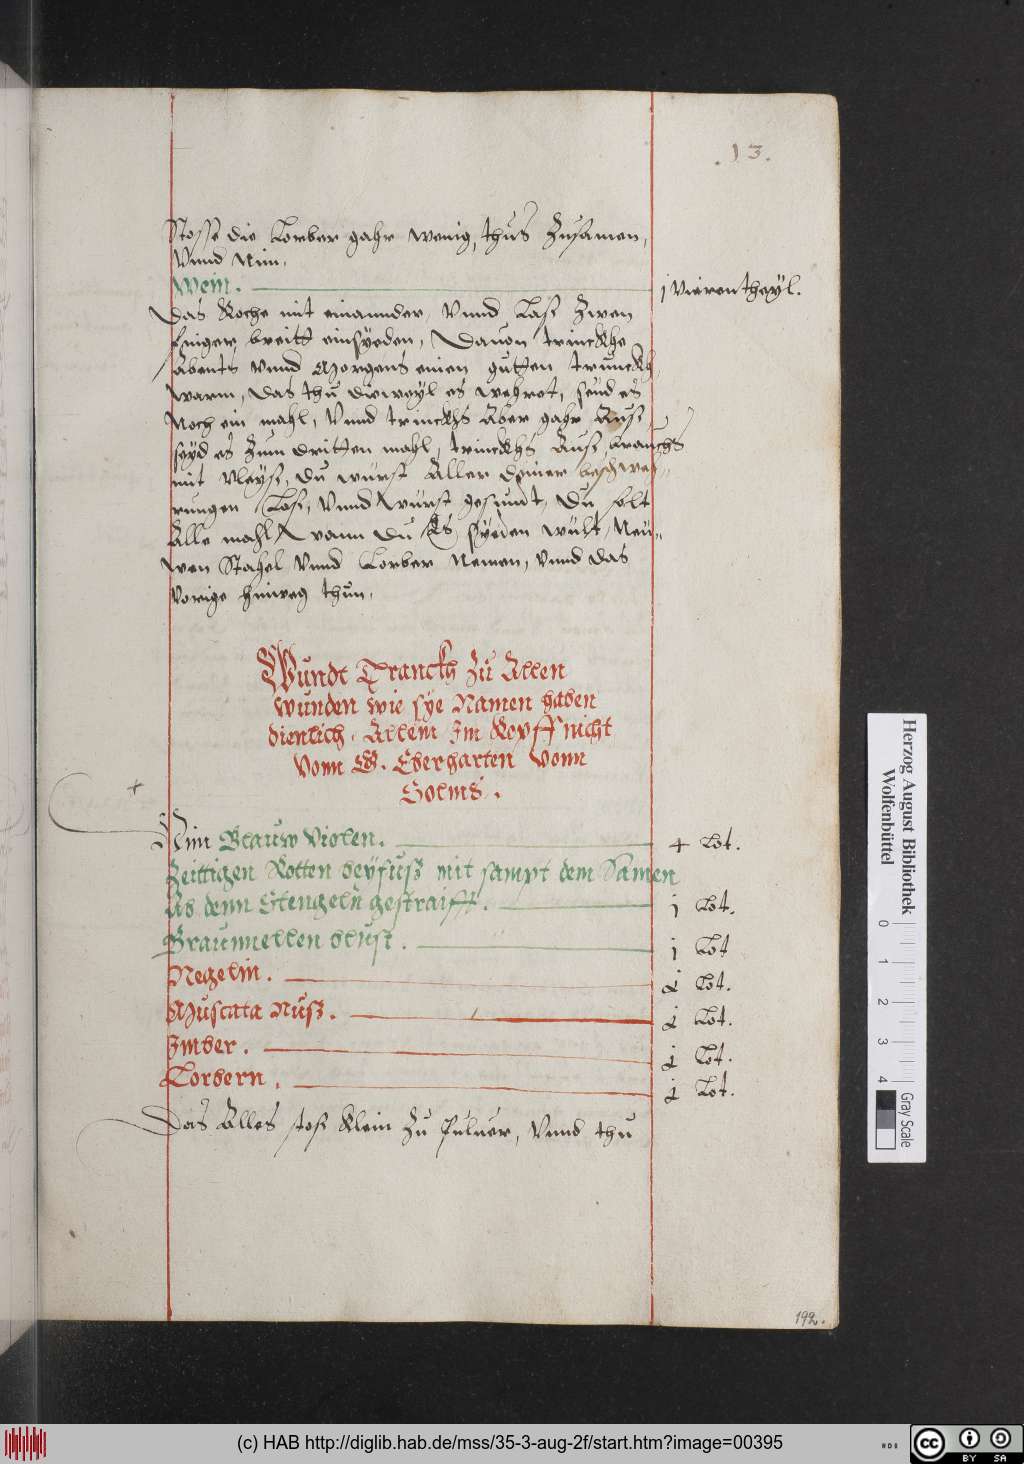 . 13 .
Stosse die Lorber gahr wenig, thus zusamen,
Vnnd Nim.
Wein. j Vierentheyl.
Das Koche mit einannder, Vnnd Lasz zwen
finger breitt einsyeden, Dauon trinckhe
Abents vnnd Morgens einen gutten trunckh,
warm, das thu dieweyl es wehret, seud es
Noch ein mahl, Vnnd trinckhs Aber gahr Ausz
seyd es zum dritten mahl, trinckhs Ausz, brauchs
mit Vleysz, du wurst Aller deiner beschwe„
rungen Losz, Vnnd wurst gesundt, Du solt
Alle mahl wann du Es syeden wült, Neu„
wen Stahel Vnnd Lorber Nemen, Vnnd das
Vorige hinweg thun.
Wundt Tranckh zu Allen
wunden wie sye Namen haben
dienlich. Allein Im Kopff nicht
Vonn G. Eberharten Vonn
Solms.
+
Nim Blauw Violen. 4 Lot.
Zeittigen Rotten beyfusz mit sampt dem Samen
Ab denn Stengeln gestraifft. j Lot.
Braunnellen blust. j Lot
Negelin. Lot.
Muscata Nusz. Lot.
Imber. Lot.
Lorbern. Lot.
Das Alles stosz Klein zu Puluer, Vnnd thu
192.
Herzog August Bibliothek
Wolfenbüttel
0 1 2 3 4
Gray Scale
(c) HAB http://diglib.hab.de/mss/35-3-aug-2f/start.htm?image=00395
cc BY SA